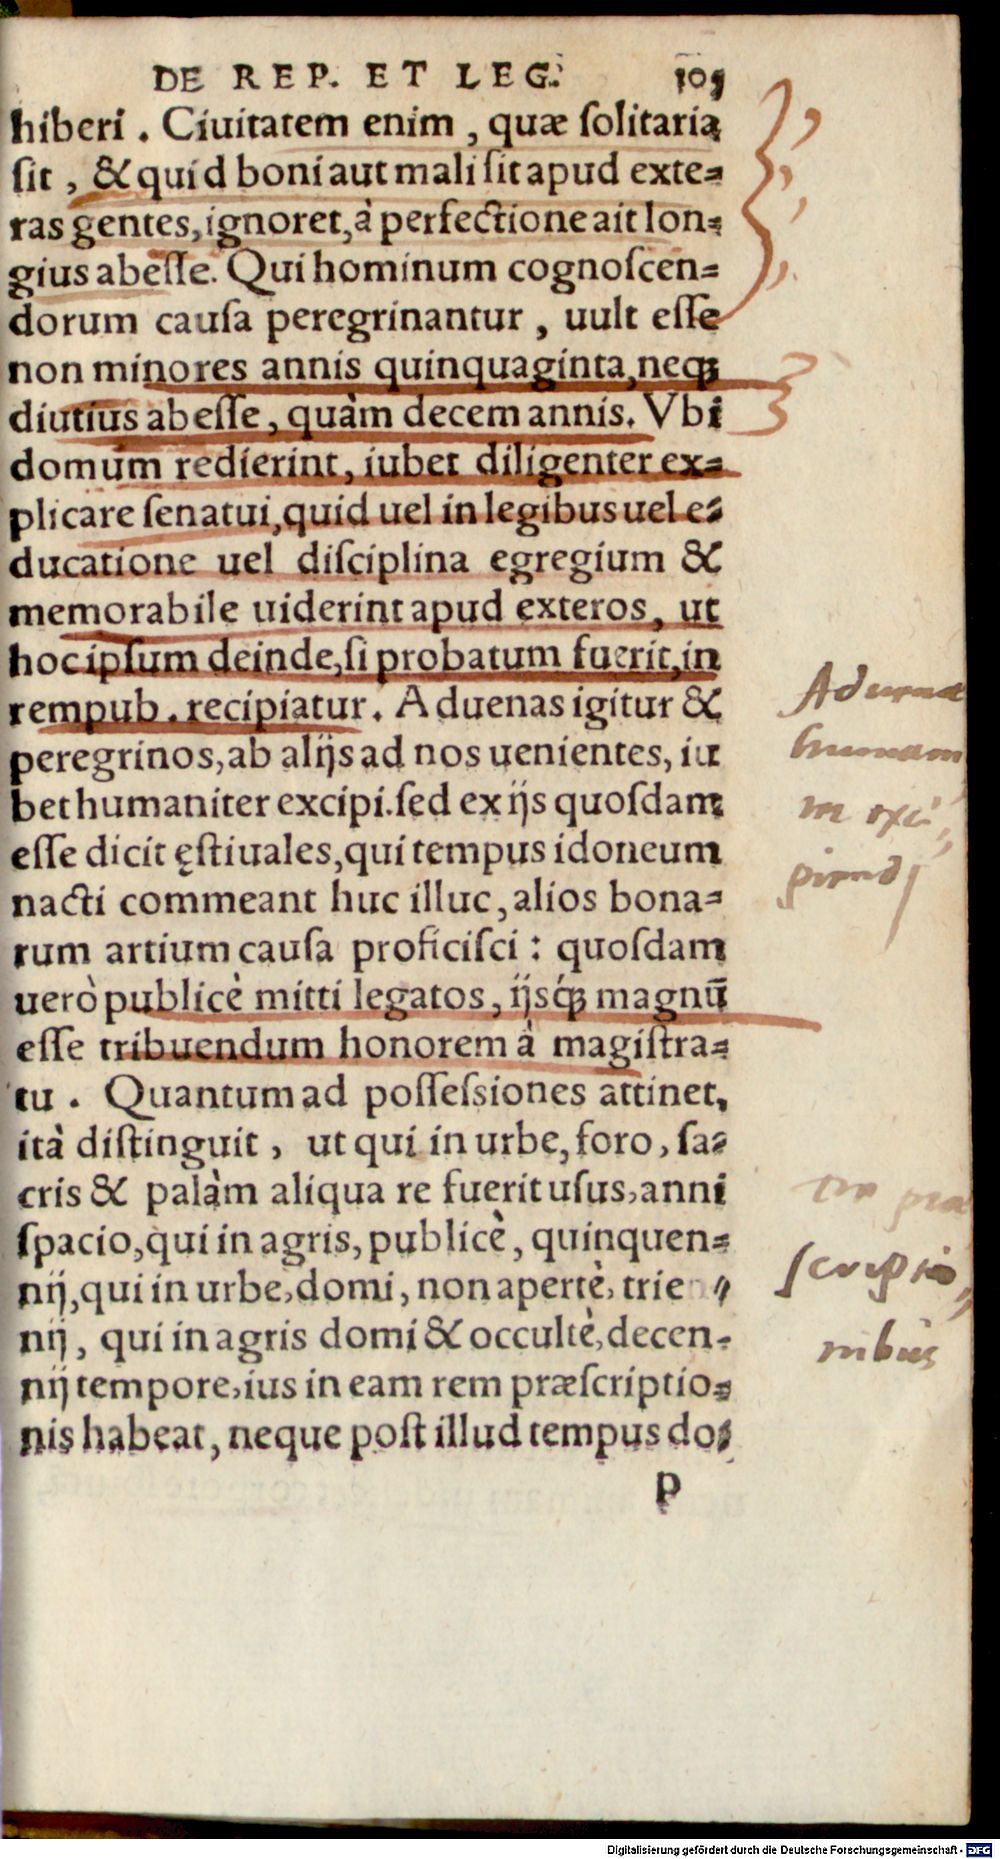 DE REP. ET LEG. 105
hiberi. Ciuitatem enim, quæ ſolitaria
ſit, & quid boni aut mali ſit apud exte-
ras gentes, ignoret, à perfectione ait lon-
gius abeſſe. Qui hominum cognoſcen-
dorum cauſa peregrinantur, uult eſſe
non minores annis quinquaginta, neqꝫ
diutius abeſſe, quàm decem annis. Vbi
domum redierint, iubet diligenter ex-
plicare ſenatui, quid uel in legibus uel e-
ducatione uel diſciplina egregium &
memorabile uiderint apud exteros, ut
hoc ipſum deinde, ſi probatum fuerit, in
rempub. recipiatur. Aduenas igitur &
peregrinos, ab alijs ad nos uenientes, iu
bet humaniter excipi. ſed ex ijs quoſdam
eſſe dicit ęſtiuales, qui tempus idoneum
nacti commeant huc illuc, alios bona-
rum artium cauſa proficiſci: quoſdam
uerò publicè mitti legatos, ijsq́ꝫ magnū
eſſe tribuendum honorem à magiſtra-
tu. Quantum ad poſſeſsiones attinet,
ità diſtinguit, ut qui in urbe, foro, ſa-
cris & palàm aliqua re fuerit uſus, anni
ſpacio, qui in agris, publicè, quinquen-
nij, qui in urbe, domi, non apertè, trien-
nij, qui in agris domi & occultè, decen-
nij tempore, ius in eam rem præſcriptio-
nis habeat, neque poſt illud tempus do-
P
Aduenæ
piendj
ſcriptio
nibus
Digitalisierung gefördert durch die Deutsche Forschungsgemeinschaft - DFG